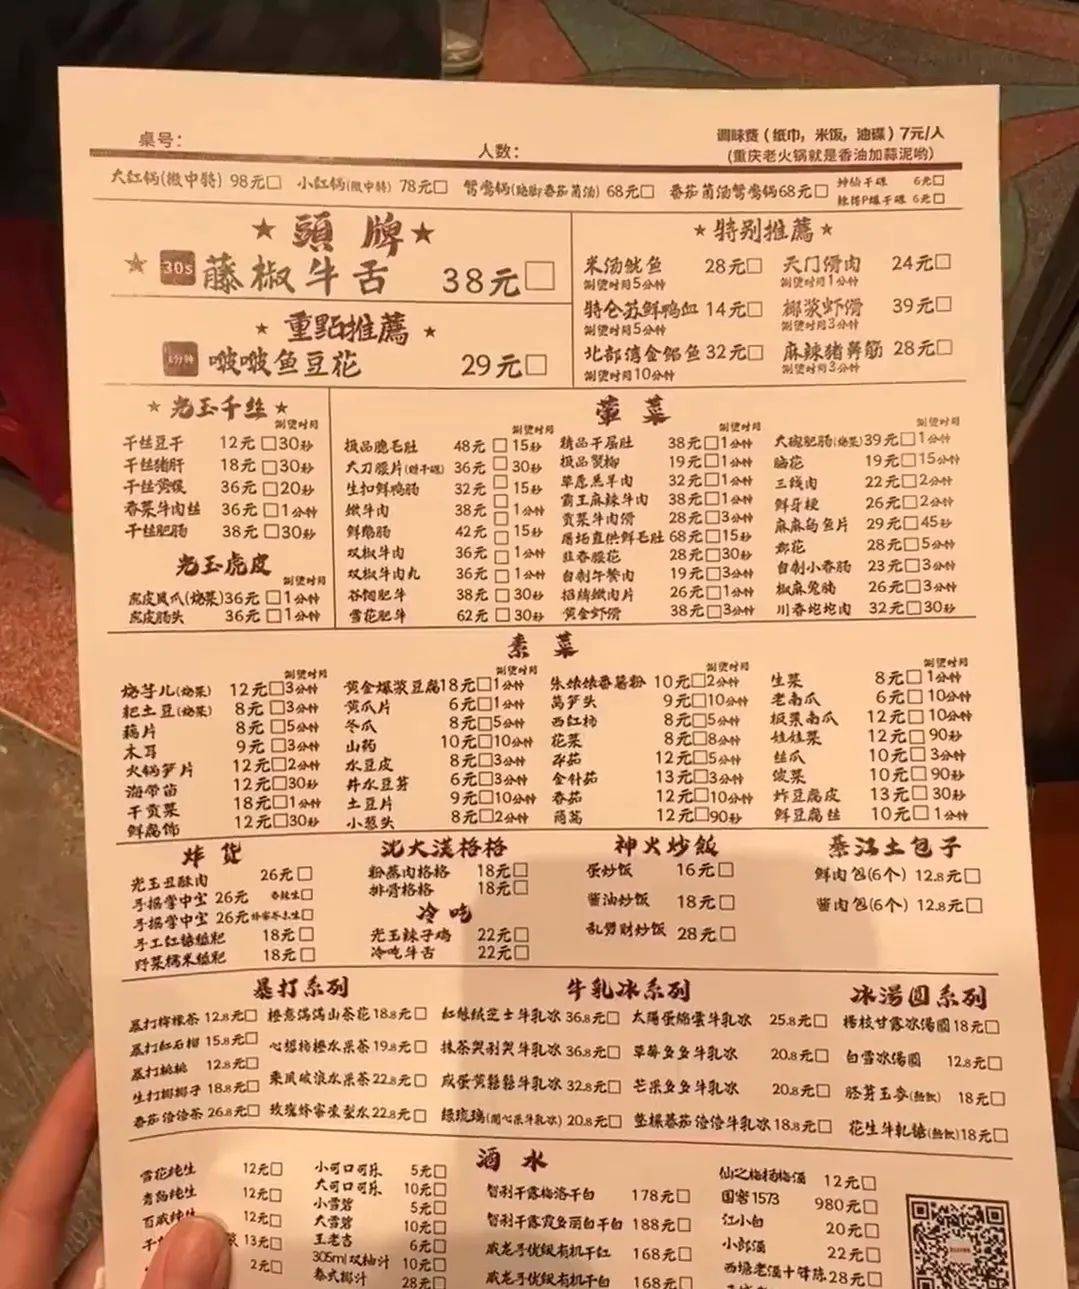 桌号：
人数：
调味费（纸巾，米饭，油碟）7元/人
(重庆老火锅就是香油加蒜泥哟)
大红锅(微中特) 98元□ 小红锅(微中特) 78元□ 鸳鸯锅 68元□ 番茄菌汤鸳鸯锅68元□
干碟 6元□
干碟 6元□
★ 頭 牌 ★
★ 30s 藤椒牛舌 38元□
★ 重點推薦 ★
啵啵鱼豆花 29元□
★ 特别推薦 ★
米汤鱿鱼 28元□ 天门滑肉 24元□
涮烫时间5分钟 涮烫时间1分钟
特仑苏鲜鸭血 14元□ 椰浆虾滑 39元□
涮烫时间5分钟 涮烫时间3分钟
北部湾金鲳鱼 32元□ 麻辣猪鼻筋 28元□
涮烫时间10分钟 涮烫时间3分钟
★ 光玉千丝 ★
涮烫时间
千丝豆干 12元□30秒
千丝猪肝 18元□30秒
千丝黄喉 36元□20秒
香菜牛肉丝 36元□1分钟
千丝肥肠 38元□30秒
光玉虎皮
涮烫时间
虎皮凤爪(烧菜)36元□1分钟
虎皮肠头 36元□1分钟
荤 菜
涮烫时间 涮烫时间 涮烫时间
极品脆毛肚 48元□15秒
大刀腰片(赠干碟) 36元□30秒
生扣鲜鸭肠 32元□15秒
嫩牛肉 38元□1分钟
鲜鹅肠 42元□15秒
双椒牛肉 36元□1分钟
双椒牛肉丸 36元□1分钟
谷饲肥牛 38元□30秒
雪花肥牛 62元□30秒
精品千层肚 38元□1分钟
极品贤柳 19元□1分钟
草原羔羊肉 32元□1分钟
霸王麻辣牛肉 38元□1分钟
贡菜牛肉滑 28元□3分钟
屠场直供鲜毛肚 68元□15秒
韭香腰花 28元□30秒
自制午餐肉 19元□3分钟
招牌嫩肉片 26元□1分钟
黄金虾滑 38元□3分钟
大碗肥肠(烧菜)39元□1分钟
脑花 19元□15分钟
三线肉 22元□2分钟
鲜牙梗 26元□2分钟
麻麻乌鱼片 29元□45秒
郡花 28元□5分钟
自制小香肠 23元□3分钟
椒麻兔腩 26元□3分钟
川香坨坨肉 32元□30秒
素 菜
涮烫时间 涮烫时间 涮烫时间 涮烫时间
烧芋儿(烧菜) 12元□3分钟
耙土豆(烧菜) 8元□3分钟
藕片 8元□5分钟
木耳 9元□3分钟
火锅笋片 12元□2分钟
海带苗 12元□30秒
干贡菜 18元□1分钟
鲜腐饰 12元□30秒
黄金爆浆豆腐18元□1分钟
黄瓜片 6元□1分钟
冬瓜 8元□5分钟
山药 10元□10分钟
水豆皮 8元□3分钟
井水豆芽 6元□3分钟
土豆片 9元□10分钟
小葱头 8元□2分钟
朱娘娘番薯粉 10元□2分钟
莴笋头 9元□10分钟
西红柿 8元□5分钟
花菜 8元□8分钟
平菇 12元□5分钟
金针菇 13元□3分钟
香菇 12元□10分钟
茼蒿 12元□90秒
生菜 8元□1分钟
老南瓜 6元□10分钟
板栗南瓜 12元□10分钟
娃娃菜 12元□90秒
丝瓜 10元□3分钟
菠菜 10元□90秒
炸豆腐皮 13元□30秒
鲜豆腐丝 10元□1分钟
炸 货
光玉丑酥肉 26元□
手摇掌中宝 26元 香辣生□
手摇掌中宝 26元□
手工红糖糍粑 18元□
野菜糯米糍粑 18元□
沈大漢格格
粉蒸肉格格 18元□
排骨格格 18元□
冷 吃
光玉辣子鸡 22元□
冷吃牛舌 22元□
神火炒飯
蛋炒饭 16元□
酱油炒饭 18元□
乱劈财炒饭 28元□
綦江土包子
鲜肉包(6个) 12.8元□
酱肉包(6个) 12.8元□
暴打系列
暴打柠檬茶 12.8元□ 橙意满满山茶花 18.8元□
暴打红石榴 15.8元□ 心想柿橙水果茶 19.8元□
暴打桃桃 12.8元□ 乘风破浪水果茶 22.8元□
生打椰椰子 18.8元□ 玫瑰蜂蜜凍梨水 22.8元□
番茄倍倍茶 26.8元□
牛乳冰系列
红丝绒芝士牛乳冰 36.8元□ 太阳蛋绵雲牛乳冰 25.8元□
抹茶哭剥哭牛乳冰 36.8元□ 草莓多多牛乳冰 20.8元□
咸蛋黄鬆鬆牛乳冰 32.8元□ 芒果多多牛乳冰 20.8元□
绿琉璃(開心果牛乳冰) 20.8元□ 墊樸番茄倍倍牛乳冰 18.8元□
冰湯圓系列
楊枝甘露冰湯圓 18元□
白雪冰湯圓 12.8元□
胚芽玉麥(熱飲) 18元□
花生牛軋糖(熱飲)18元□
酒 水
雪花纯生 12元□
青岛纯生 12元□
百威纯生 12元□
13元□
2元□
小可口可乐 5元□
大可口可乐 10元□
小雪碧 5元□
大雪碧 10元□
王老吉 6元□
305ml双柚汁 10元□
泰式椰汁 28元□
智利干露梅洛干白 178元□
智利干露霞多丽白干白 188元□
威龙手优级有机干红 168元□
威龙手优级有机干白 168元□
仙之梅杨梅酒 12元□
国窖1573 980元□
江小白 20元□
小郎酒 22元□
西塘老酒十锋陈28元□